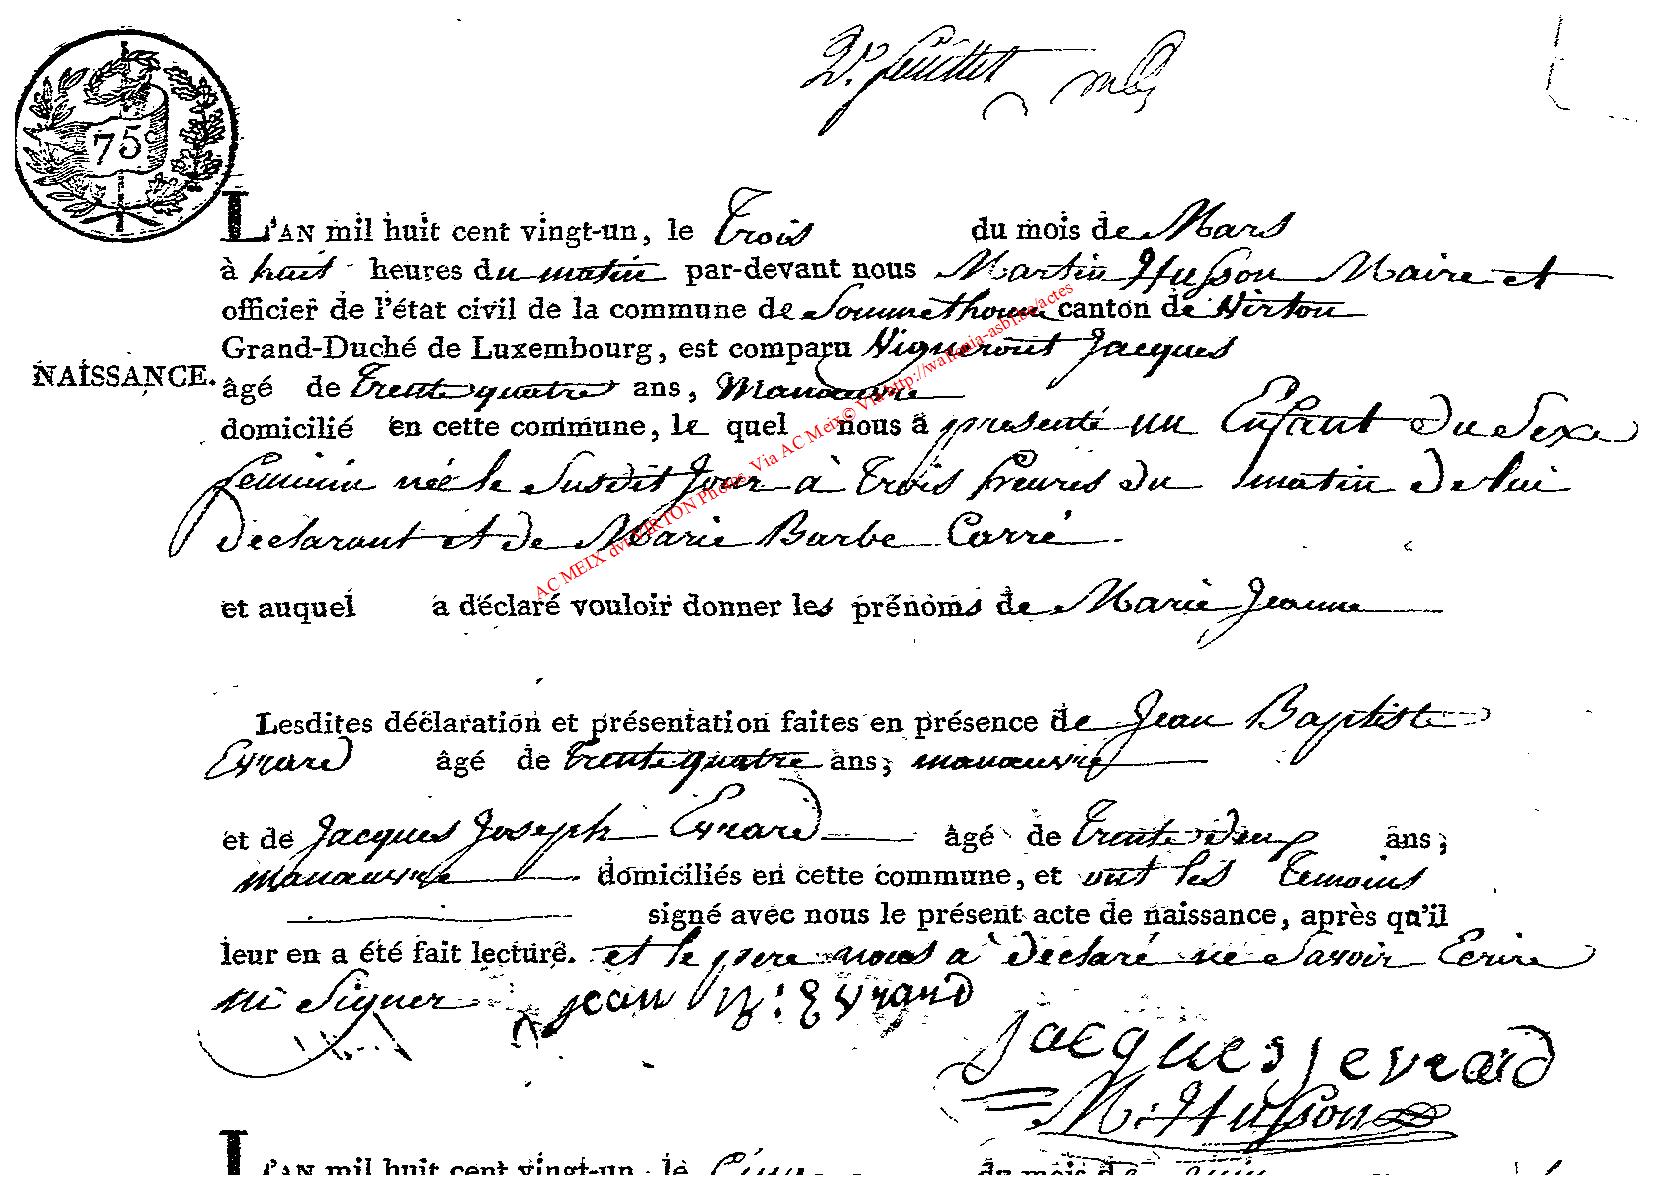 2e. feuillet
75c
L'AN mil huit cent vingt-un, le Trois du mois de Mars
à huit heures du matin par-devant nous Martin Husson Maire et
officier de l'état civil de la commune de Sommethonne canton de Virton
Grand-Duché de Luxembourg, est comparu Vigneront Jacques
NAISSANCE.
âgé de Trente quatre ans, Manoeuvre
domicilié en cette commune, le quel nous a presenté un Enfant du Sexe
feminin née le Susdit Jour à Trois heures du matin de lui
declarant et de Marie Barbe Carré.
et auquel a déclaré vouloir donner les prénoms de Marie Jeanne
Lesdites déclaration et présentation faites en présence de Jean Baptiste
Evrard âgé de Trente quatre ans; manoeuvre
et de Jacques Joseph Evrard âgé de Trente deux ans;
manoeuvre domiciliés en cette commune, et ont les Temoins
signé avec nous le présent acte de naissance, après qu'il
leur en a été fait lecture. et le pere nous a déclaré ne Savoir Ecrire
ni Signer jean b: Evrard
jacques j evrard
M: Husson
L'AN mil huit cent vingt-un, le du mois de
AC MEIX dvt VIRTON Photos Via AC Meix© Via http://wallonia-asbl.be/actes